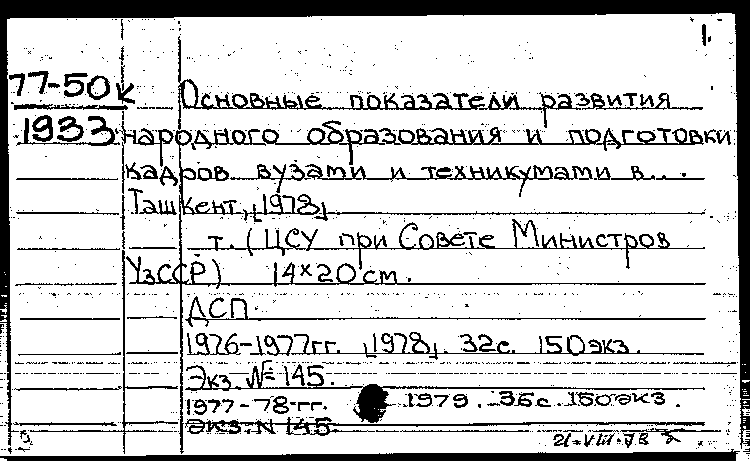 1.
77-50к
1933
Основные показатели развития
народного образования и подготовки
кадров вузами и техникумами в...
Ташкент, [1978]
т. (ЦСУ при Совете Министров
УзССР) 14×20 см.
ДСП.
1976-1977гг. [1978]. 32с. 150экз.
Экз. № 145.
1977-78-гг. 1979. 36с. 150экз.
экз. N 145.